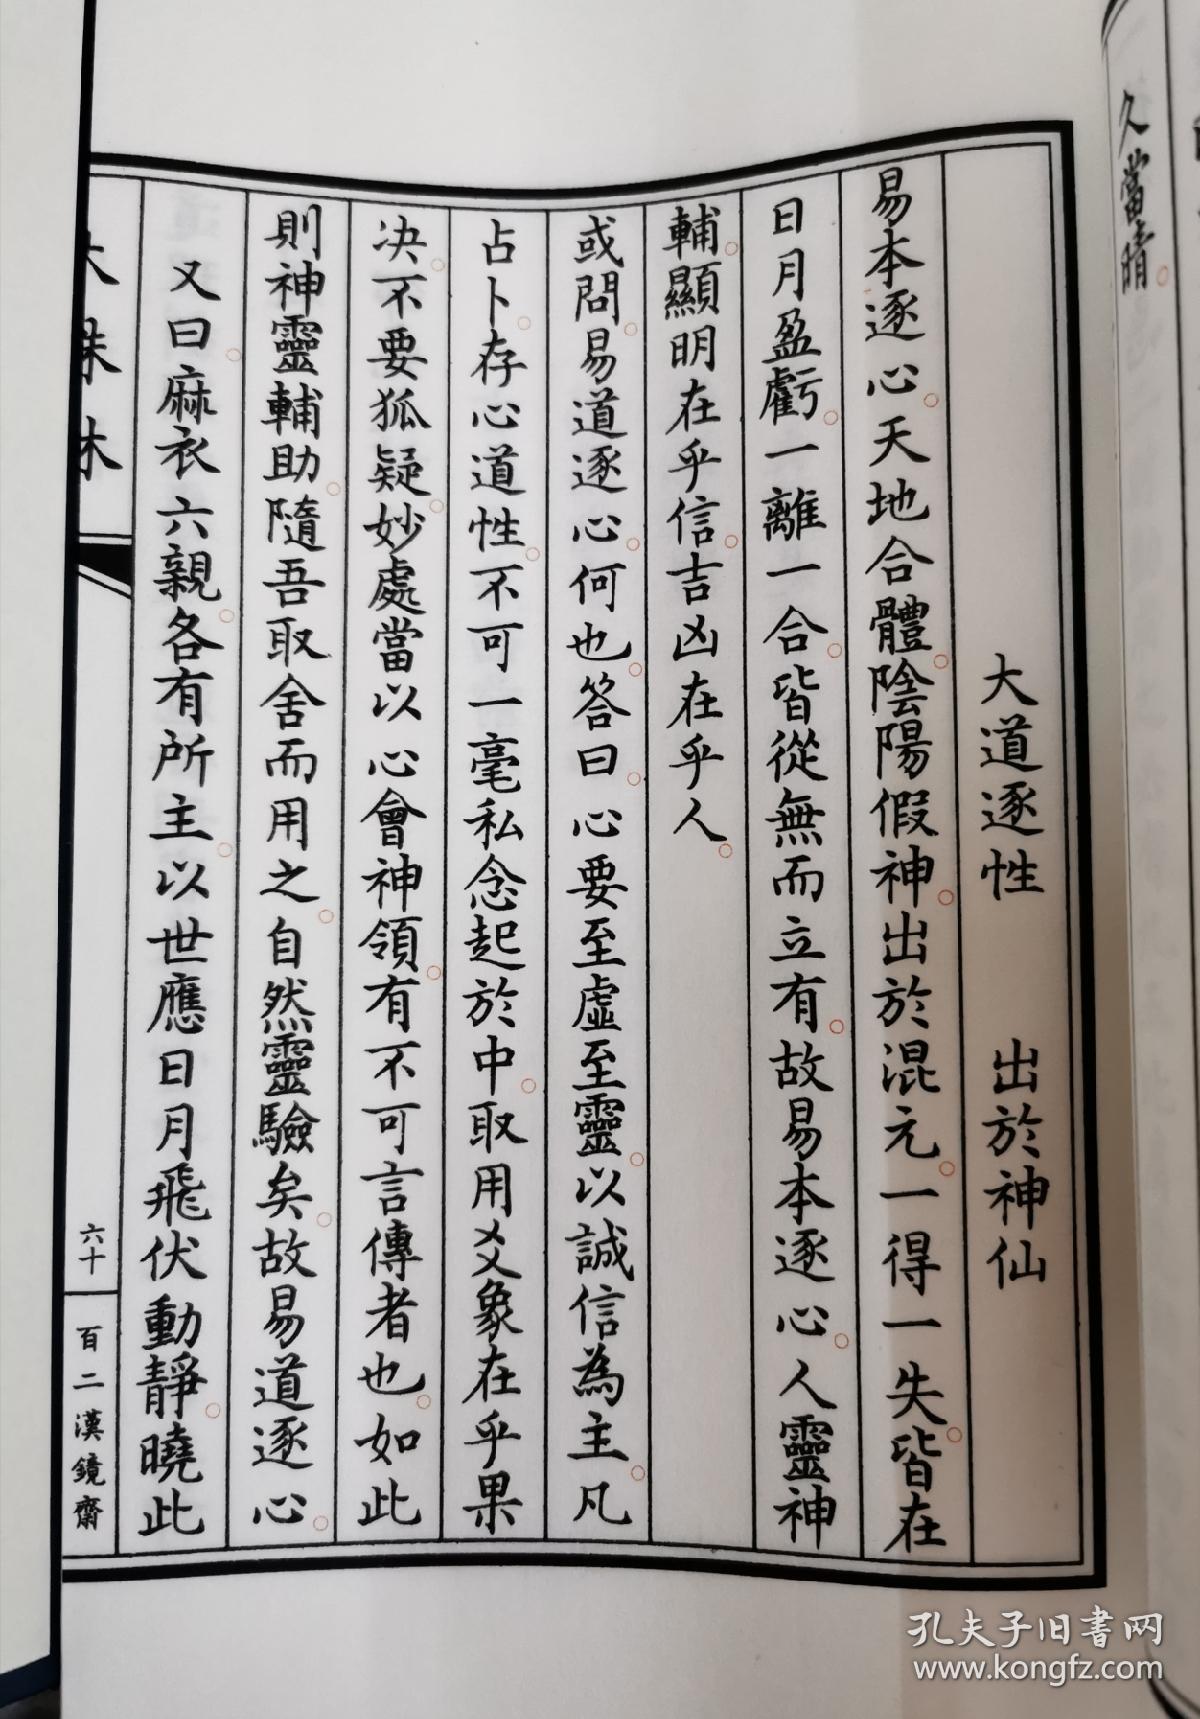 久當晴。
大道逐性　出於神仙
易本逐心。天地合體。陰陽假神。出於混元。一得一失。皆在
日月盈虧。一離一合。皆從無而立有。故易本逐心。人靈神
輔。顯明在乎信。吉凶在乎人。
或問。易道逐心。何也。答曰。心要至虛至靈。以誠信為主。凡
占卜。存心道性。不可一毫私念起於中。取用爻象在乎果
决。不要狐疑。妙處當以心會神領。有不可言傳者也。如此
則神靈輔助。隨吾取舍而用之。自然靈驗矣。故易道逐心。
又曰。麻衣六親。各有所主。以世應日月飛伏動靜。曉此
六十
百二漢鏡齋
孔夫子旧书网
www.kongfz.com